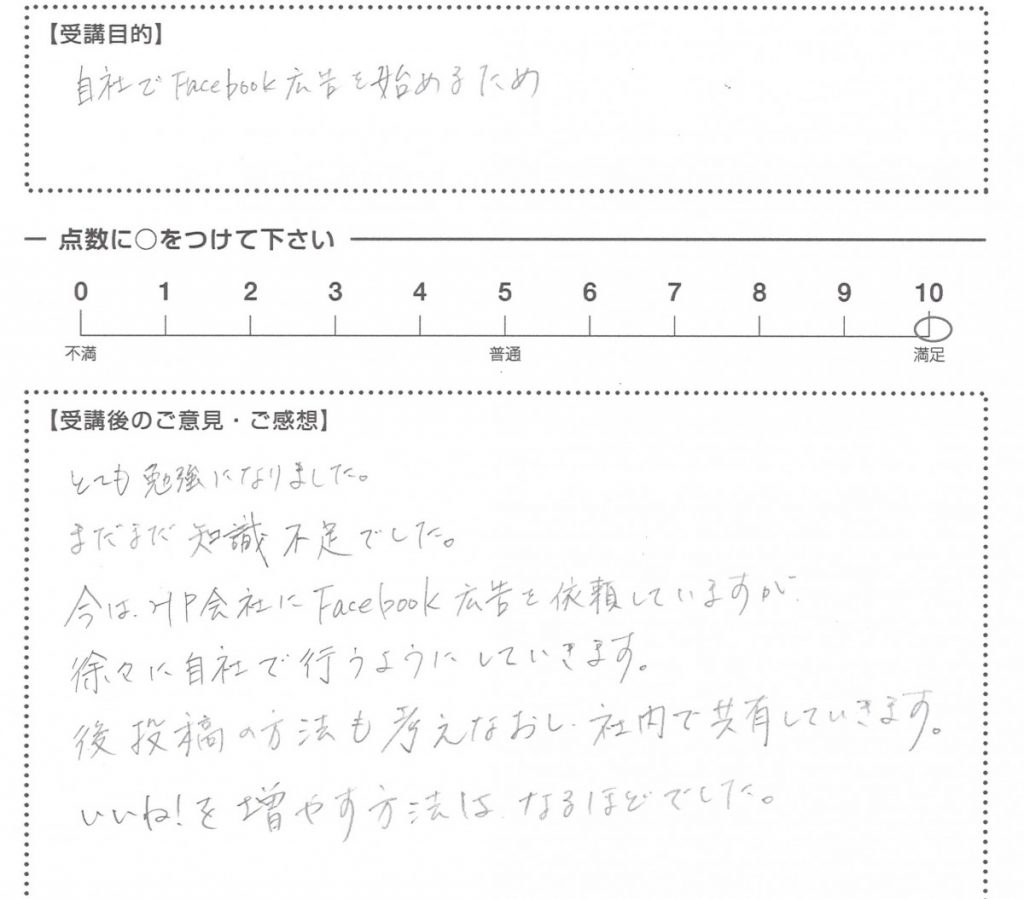 【受講目的】
自社でFacebook広告を始めるため
点数に○をつけて下さい
0 1 2 3 4 5 6 7 8 9 10
不満 普通 満足
【受講後のご意見・ご感想】
とても勉強になりました。
まだまだ知識不足でした。
今は、HP会社にFacebook広告を依頼していますが、
徐々に自社で行うようにしていきます。
後投稿の方法も考えなおし、社内で共有していきます。
いいね!を増やす方法は、なるほどでした。